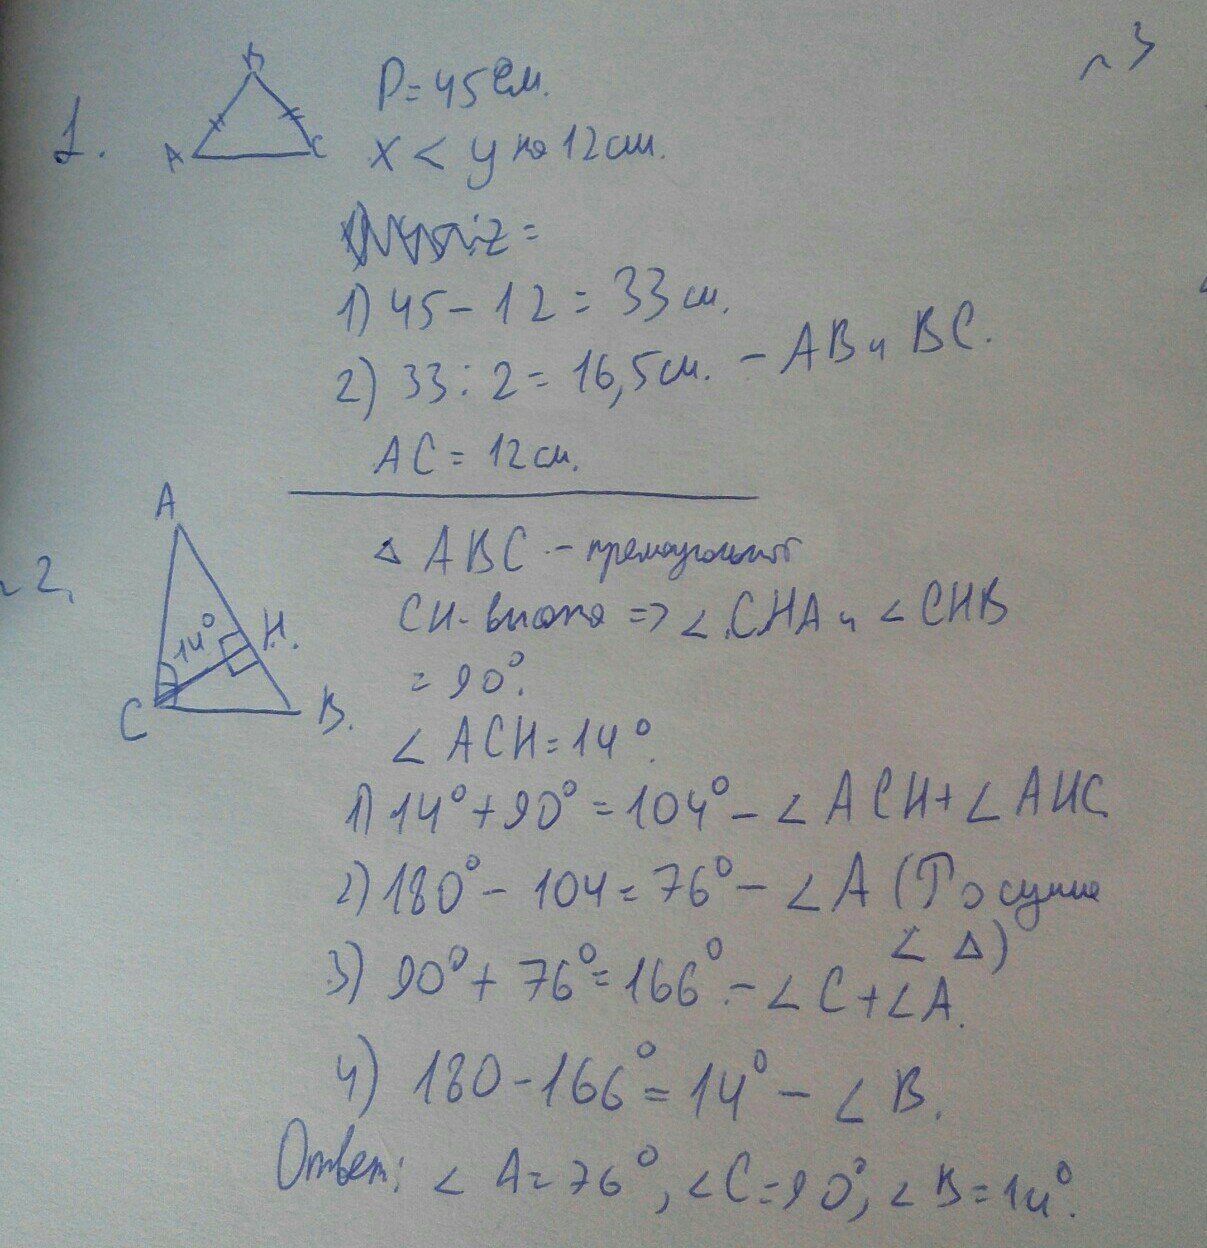 √3
1.
B
A
C
P=45см.
x < y на 12см.
1) 45-12=33 см.
2) 33:2=16,5см. - AB и BC.
AC=12см.
2.
A
14°
H.
C
B.
△ ABC - прямоугольный
CH - высота => ∠CHA и ∠CHB
= 90°.
∠ ACH=14°.
1) 14°+90°=104° - ∠ACH+∠AHC
2) 180°-104=76° - ∠A (Т о сумме
∠ △)
3) 90°+76°=166° - ∠C+∠A.
4) 180-166°=14° - ∠B.
Ответ: ∠A=76°, ∠C=90°, ∠B=14°.